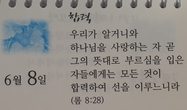 합력
우리가 알거니와
하나님을 사랑하는 자 곧
그의 뜻대로 부르심을 입은
자들에게는 모든 것이
합력하여 선을 이루느니라
(롬 8:28)
6월 8일